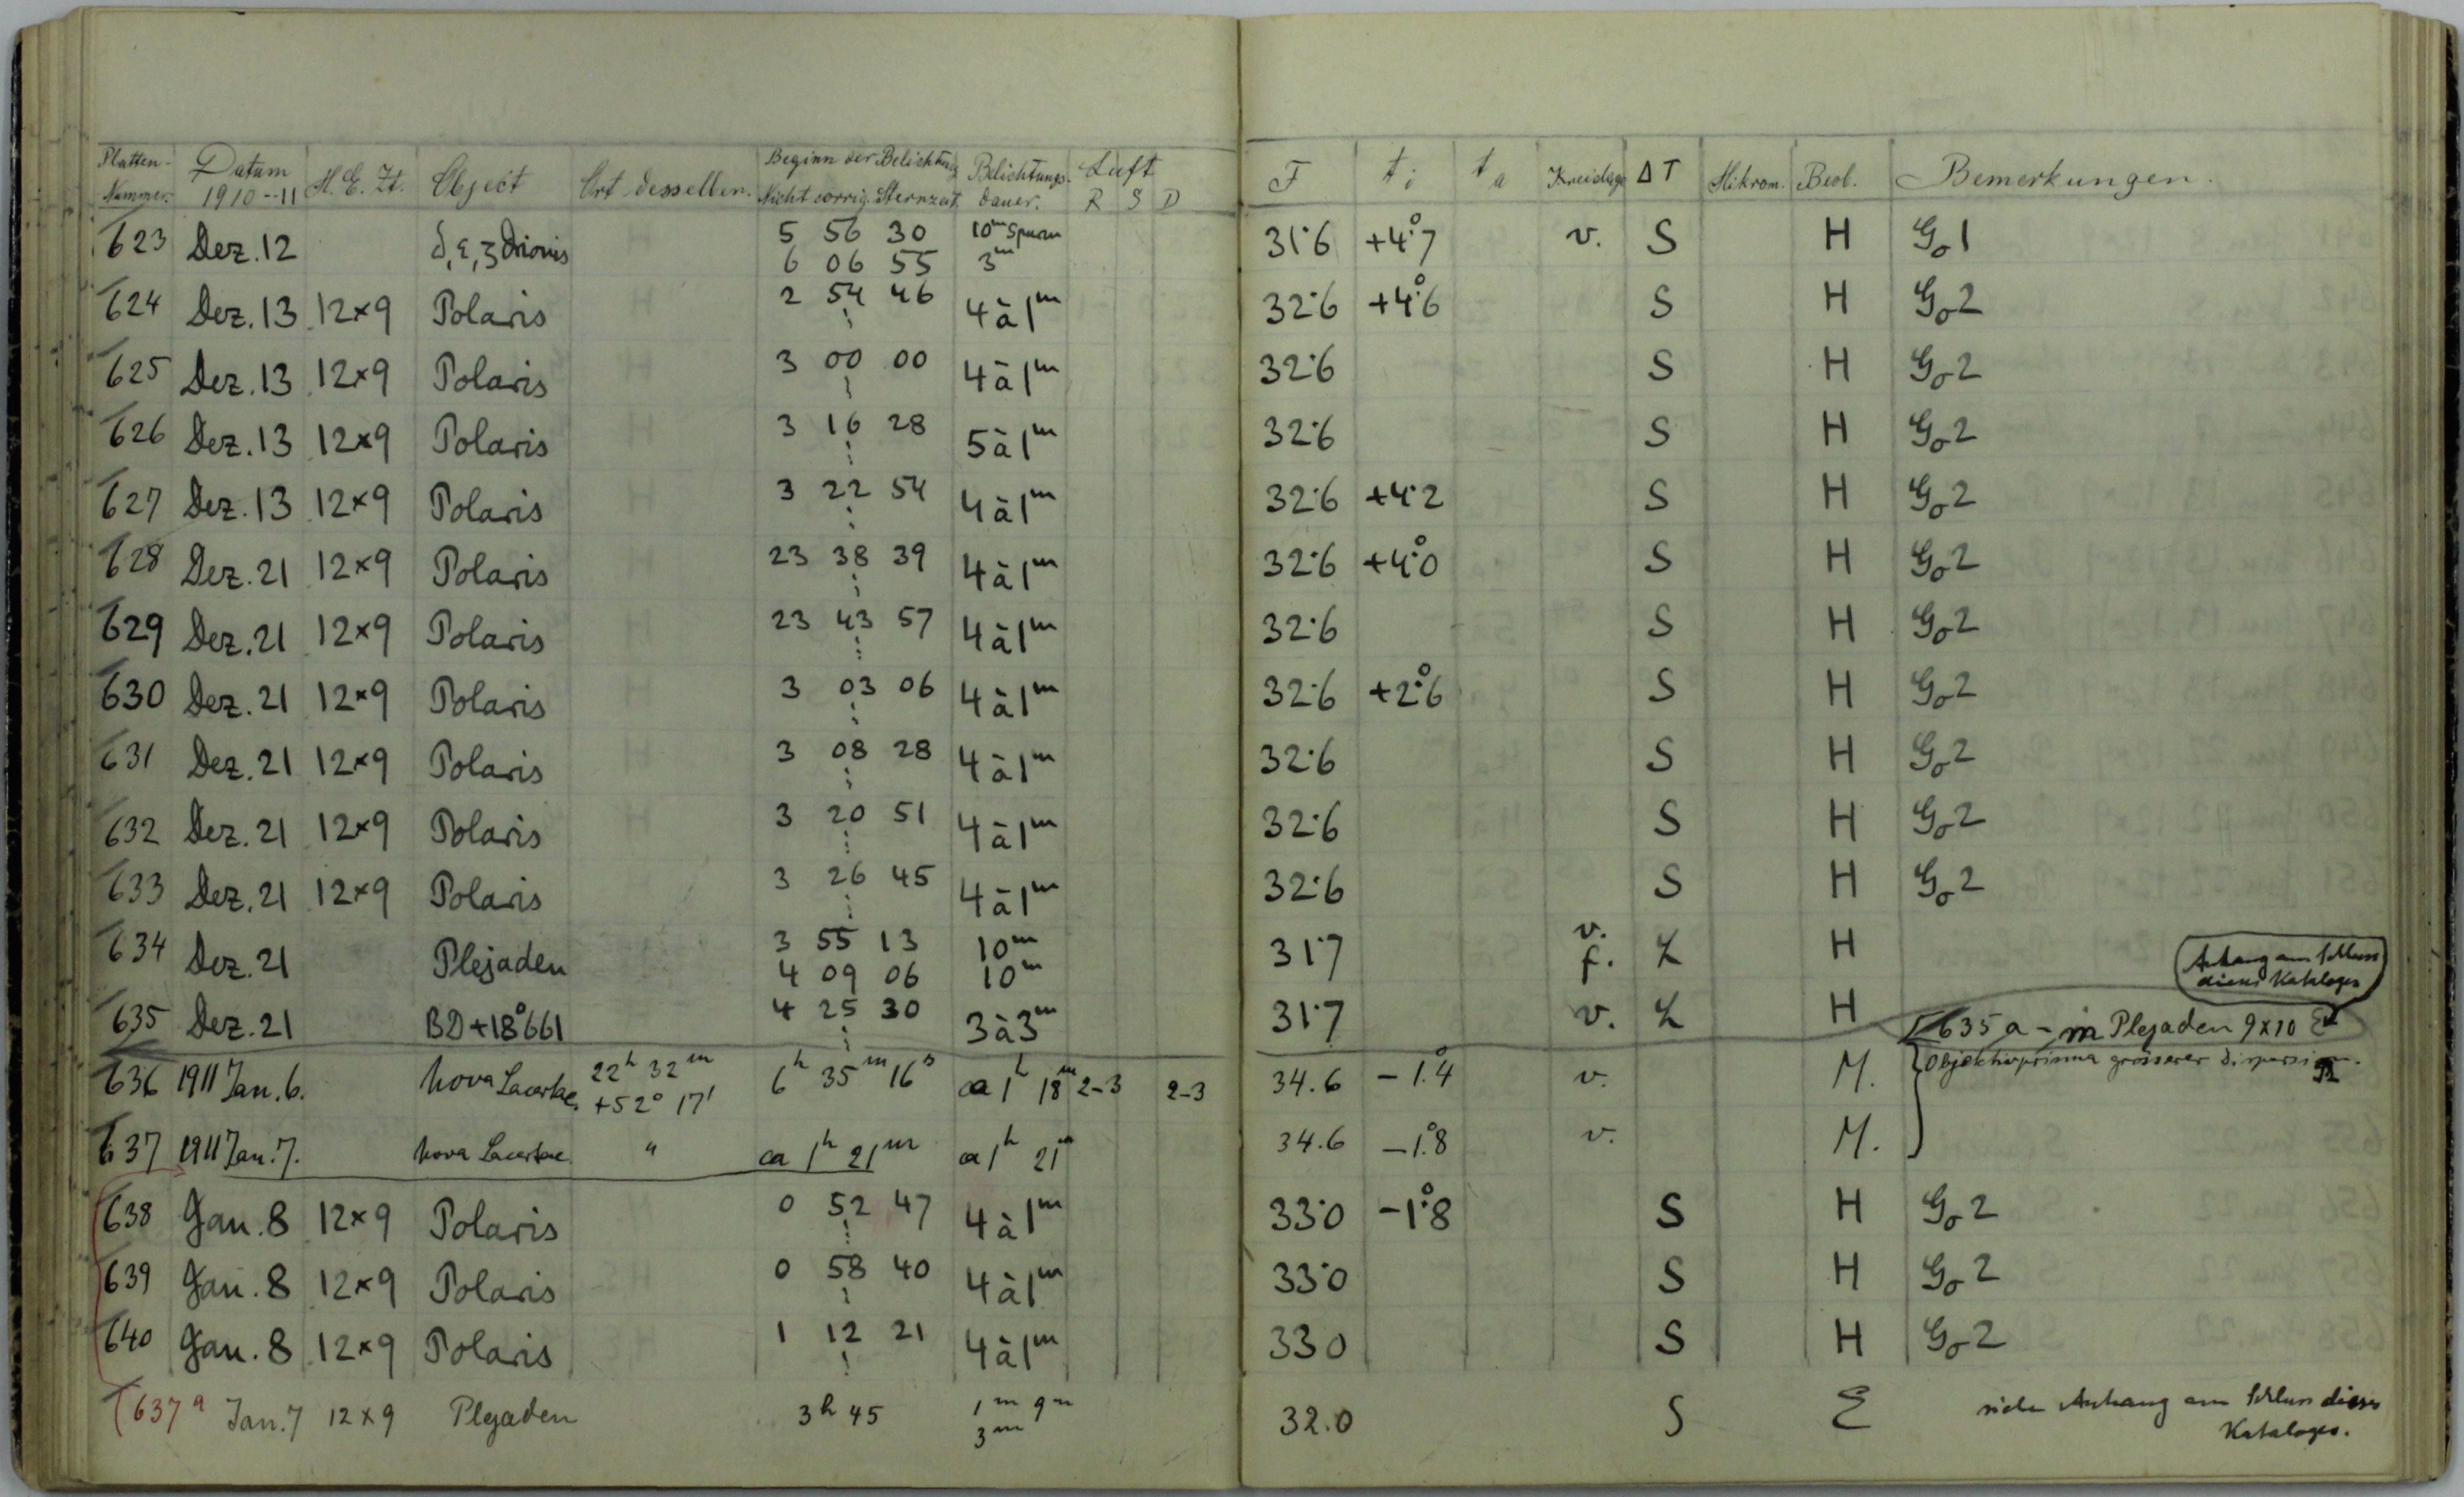 Platten- Nummer. Datum 1910-11 M. E. Zt. Object Ort desselben. Beginn der Belichtung Nicht corrig. Sternzeit. Belichtungs- dauer. Luft R S D F ti ta Kreislage ΔT Mikrom. Beob. Bemerkungen.
623 Dez. 12 δ, ε, ζ Orionis 5 56 30 10m Spuren 31.6 +4°.7 v. S H Go 1
6 06 55 3m
624 Dez. 13 12×9 Polaris 2 54 46 4 à 1m 32.6 +4°.6 S H Go 2
625 Dez. 13 12×9 Polaris 3 00 00 4 à 1m 32.6 S H Go 2
626 Dez. 13 12×9 Polaris 3 16 28 5 à 1m 32.6 S H Go 2
627 Dez. 13 12×9 Polaris 3 22 54 4 à 1m 32.6 +4.2 S H Go 2
628 Dez. 21 12×9 Polaris 23 38 39 4 à 1m 32.6 +4°.0 S H Go 2
629 Dez. 21 12×9 Polaris 23 43 57 4 à 1m 32.6 S H Go 2
630 Dez. 21 12×9 Polaris 3 03 06 4 à 1m 32.6 +2°.6 S H Go 2
631 Dez. 21 12×9 Polaris 3 08 28 4 à 1m 32.6 S H Go 2
632 Dez. 21 12×9 Polaris 3 20 51 4 à 1m 32.6 S H Go 2
633 Dez. 21 12×9 Polaris 3 26 45 4 à 1m 32.6 S H Go 2
634 Dez. 21 Plejaden 3 55 13 10m 31.7 v. L H
4 09 06 10m f.
Anhang am Schluss
dieses Kataloges
635 Dez. 21 BD+18°661 4 25 30 3 à 3m 31.7 v. L H
635 a - m Plejaden 9×10 E
636 1911 Jan. 6. Nova Lacertae 22h 32m 6h 35m 16s ca 1h 18m 2-3 2-3 34.6 -1°.4 v. M. Objektivprisma grösserer Dispersion.
+52° 17'
637 1911 Jan. 7. Nova Lacertae " ca 1h 21m ca 1h 21m 34.6 -1°.8 v. M.
638 Jan. 8 12×9 Polaris 0 52 47 4 à 1m 33.0 -1°.8 S H Go 2
639 Jan. 8 12×9 Polaris 0 58 40 4 à 1m 33.0 S H Go 2
640 Jan. 8 12×9 Polaris 1 12 21 4 à 1m 33.0 S H Go 2
637a Jan. 7 12×9 Plejaden 3h 45 1m 9m 32.0 S E siehe Anhang am Schluss dieses
3m Kataloges.